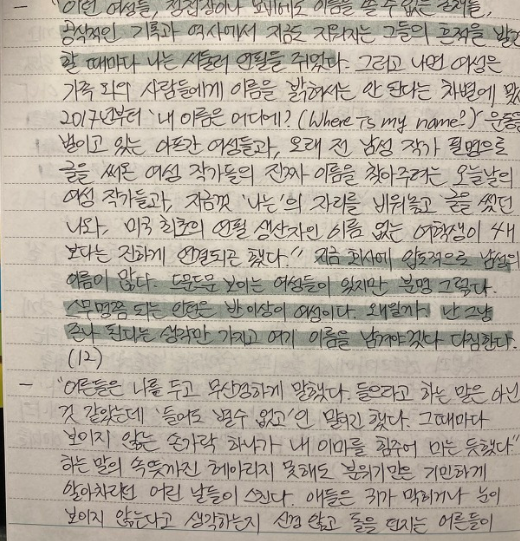 — "이런 여성들, 청첩장이나 묘비에도 이름을 쓸 수 없는 존재들,
공식적인 기록과 역사에서 지금도 지워지는 그들의 흔적을 발견
할 때마다 나는 서둘러 연필을 쥐었다. 그러고 나면 여성은
가족 외의 사람들에게 이름을 밝혀서는 안 된다는 차별에 맞서
2017년부터 '내 이름은 어디에? (Where is my name?)' 운동을
벌이고 있는 아프간 여성들과, 오래 전 남성 작가 필명으로
글을 써온 여성 작가들의 진짜 이름을 찾아주려는 오늘날의
여성 작가들과, 지금껏 '나는'의 자리를 비워놓고 글을 썼던
나와, 미국 최초의 연필 생산자인 이름 없는 여학생이 4B
보다는 진하게 연결되곤 했다." 지금 회사에 압도적으로 남성의
이름이 많다. 드문드문 보이는 여성들이 있지만 분명 그렇다.
스무명쯤 되는 인턴은 반 이상이 여성이다. 왜일까. 난 그냥
존나 된다는 생각만 가지고 여기 이름을 남겨야겠다 다짐한다.
(12)
— "어른들은 나를 두고 무신경하게 말했다. 들으라고 하는 말은 아닌
것 같았는데 '들어도 별수 없고'인 말이긴 했다. 그때마다
보이지 않는 손가락 하나가 내 이마를 힘주어 미는 듯했다."
하는 말의 속뜻까진 헤아리지 못해도 분위기만은 기민하게
알아차리던 어린 날들이 스친다. 애들은 귀가 막히거나 눈이
보이지 않는다고 생각하는지 신경 않고 돌을 던지는 어른들이